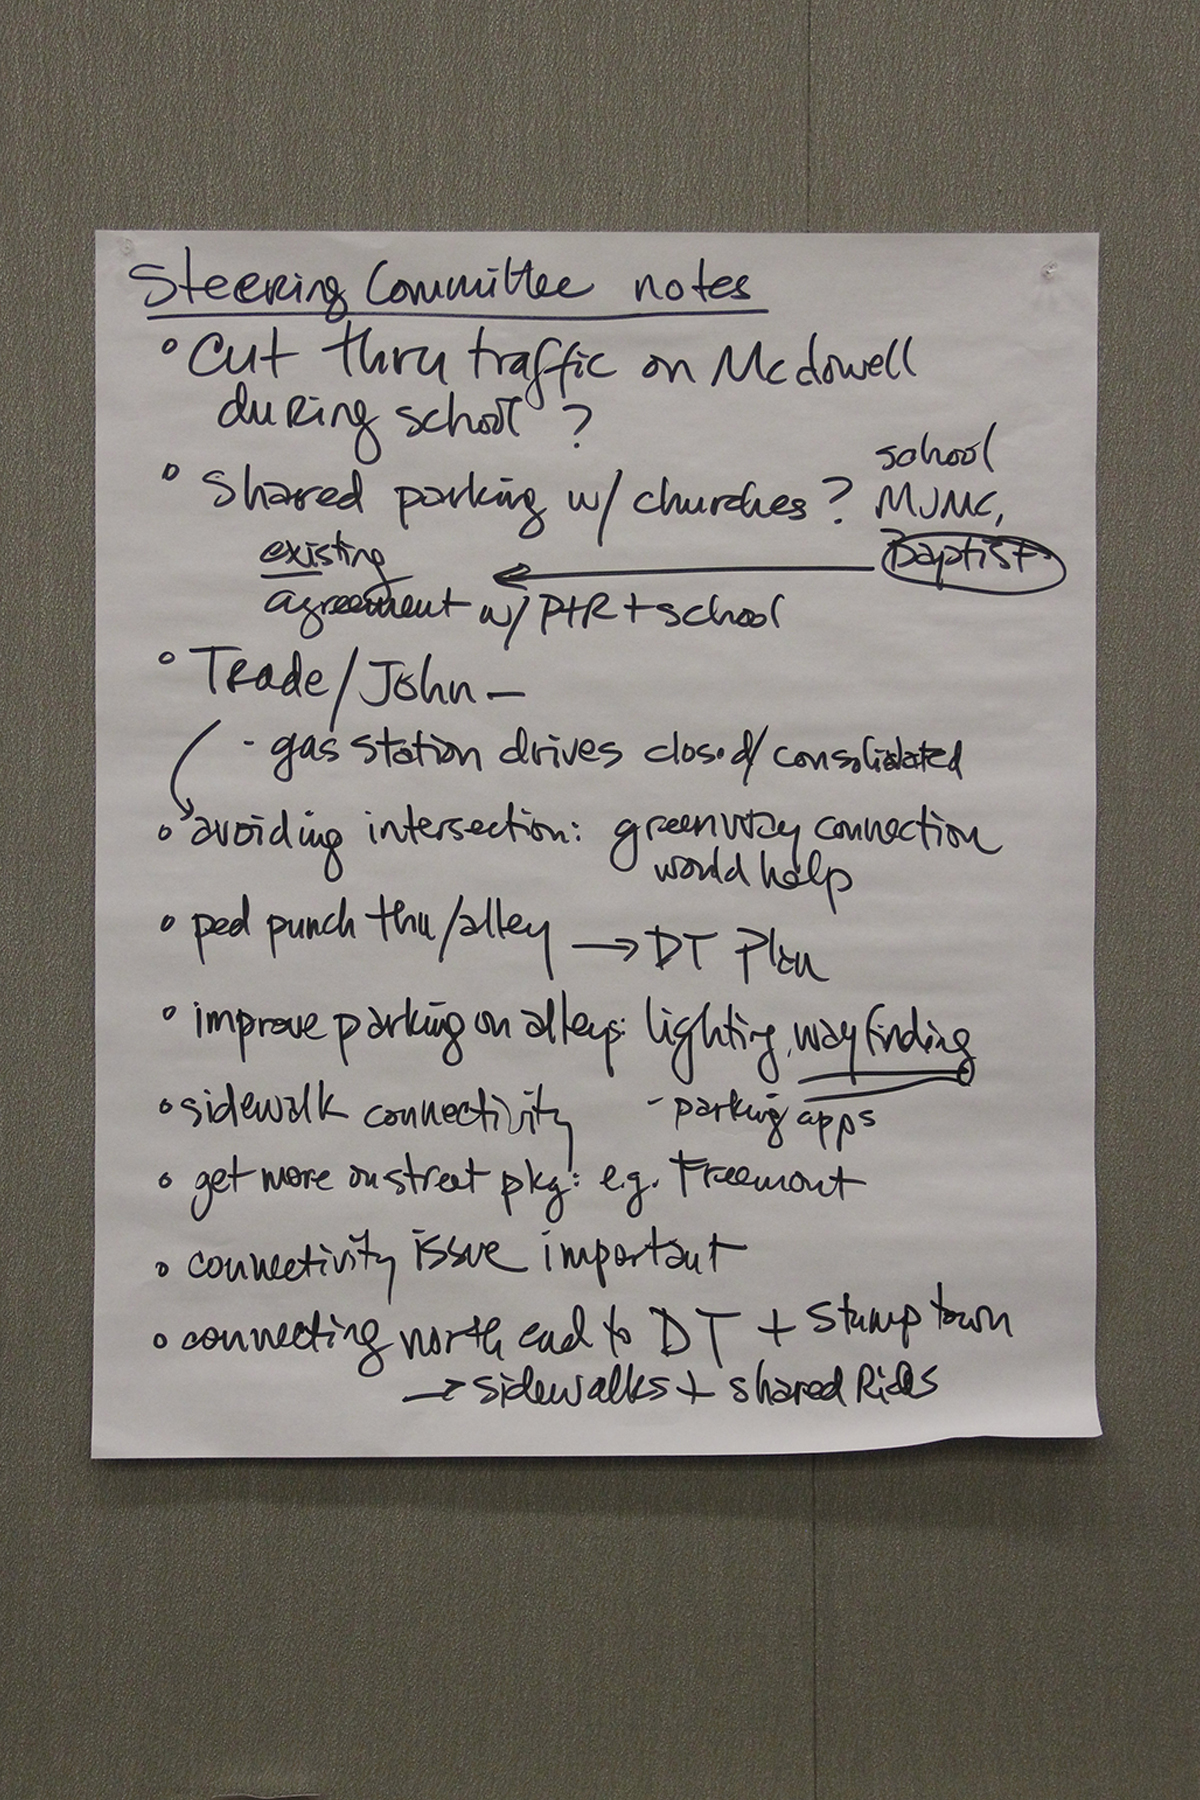 Steering Committee notes
° Cut thru traffic on McDowell
during school ?
° Shared parking w/ churches ? school
MUMC,
Baptist
existing
agreement w/ P+R + school
° Trade/John –
- gas station drives closed/consolidated
° avoiding intersection: greenway connection
would help
° ped punch thu/alley → DT Plan
° improve parking on alleys: lighting, wayfinding
- parking apps
° sidewalk connectivity
° get more on street pkg: e.g. Freemont
° connectivity issue important
° connecting north end to DT + Stumptown
→ sidewalks + shared Rides